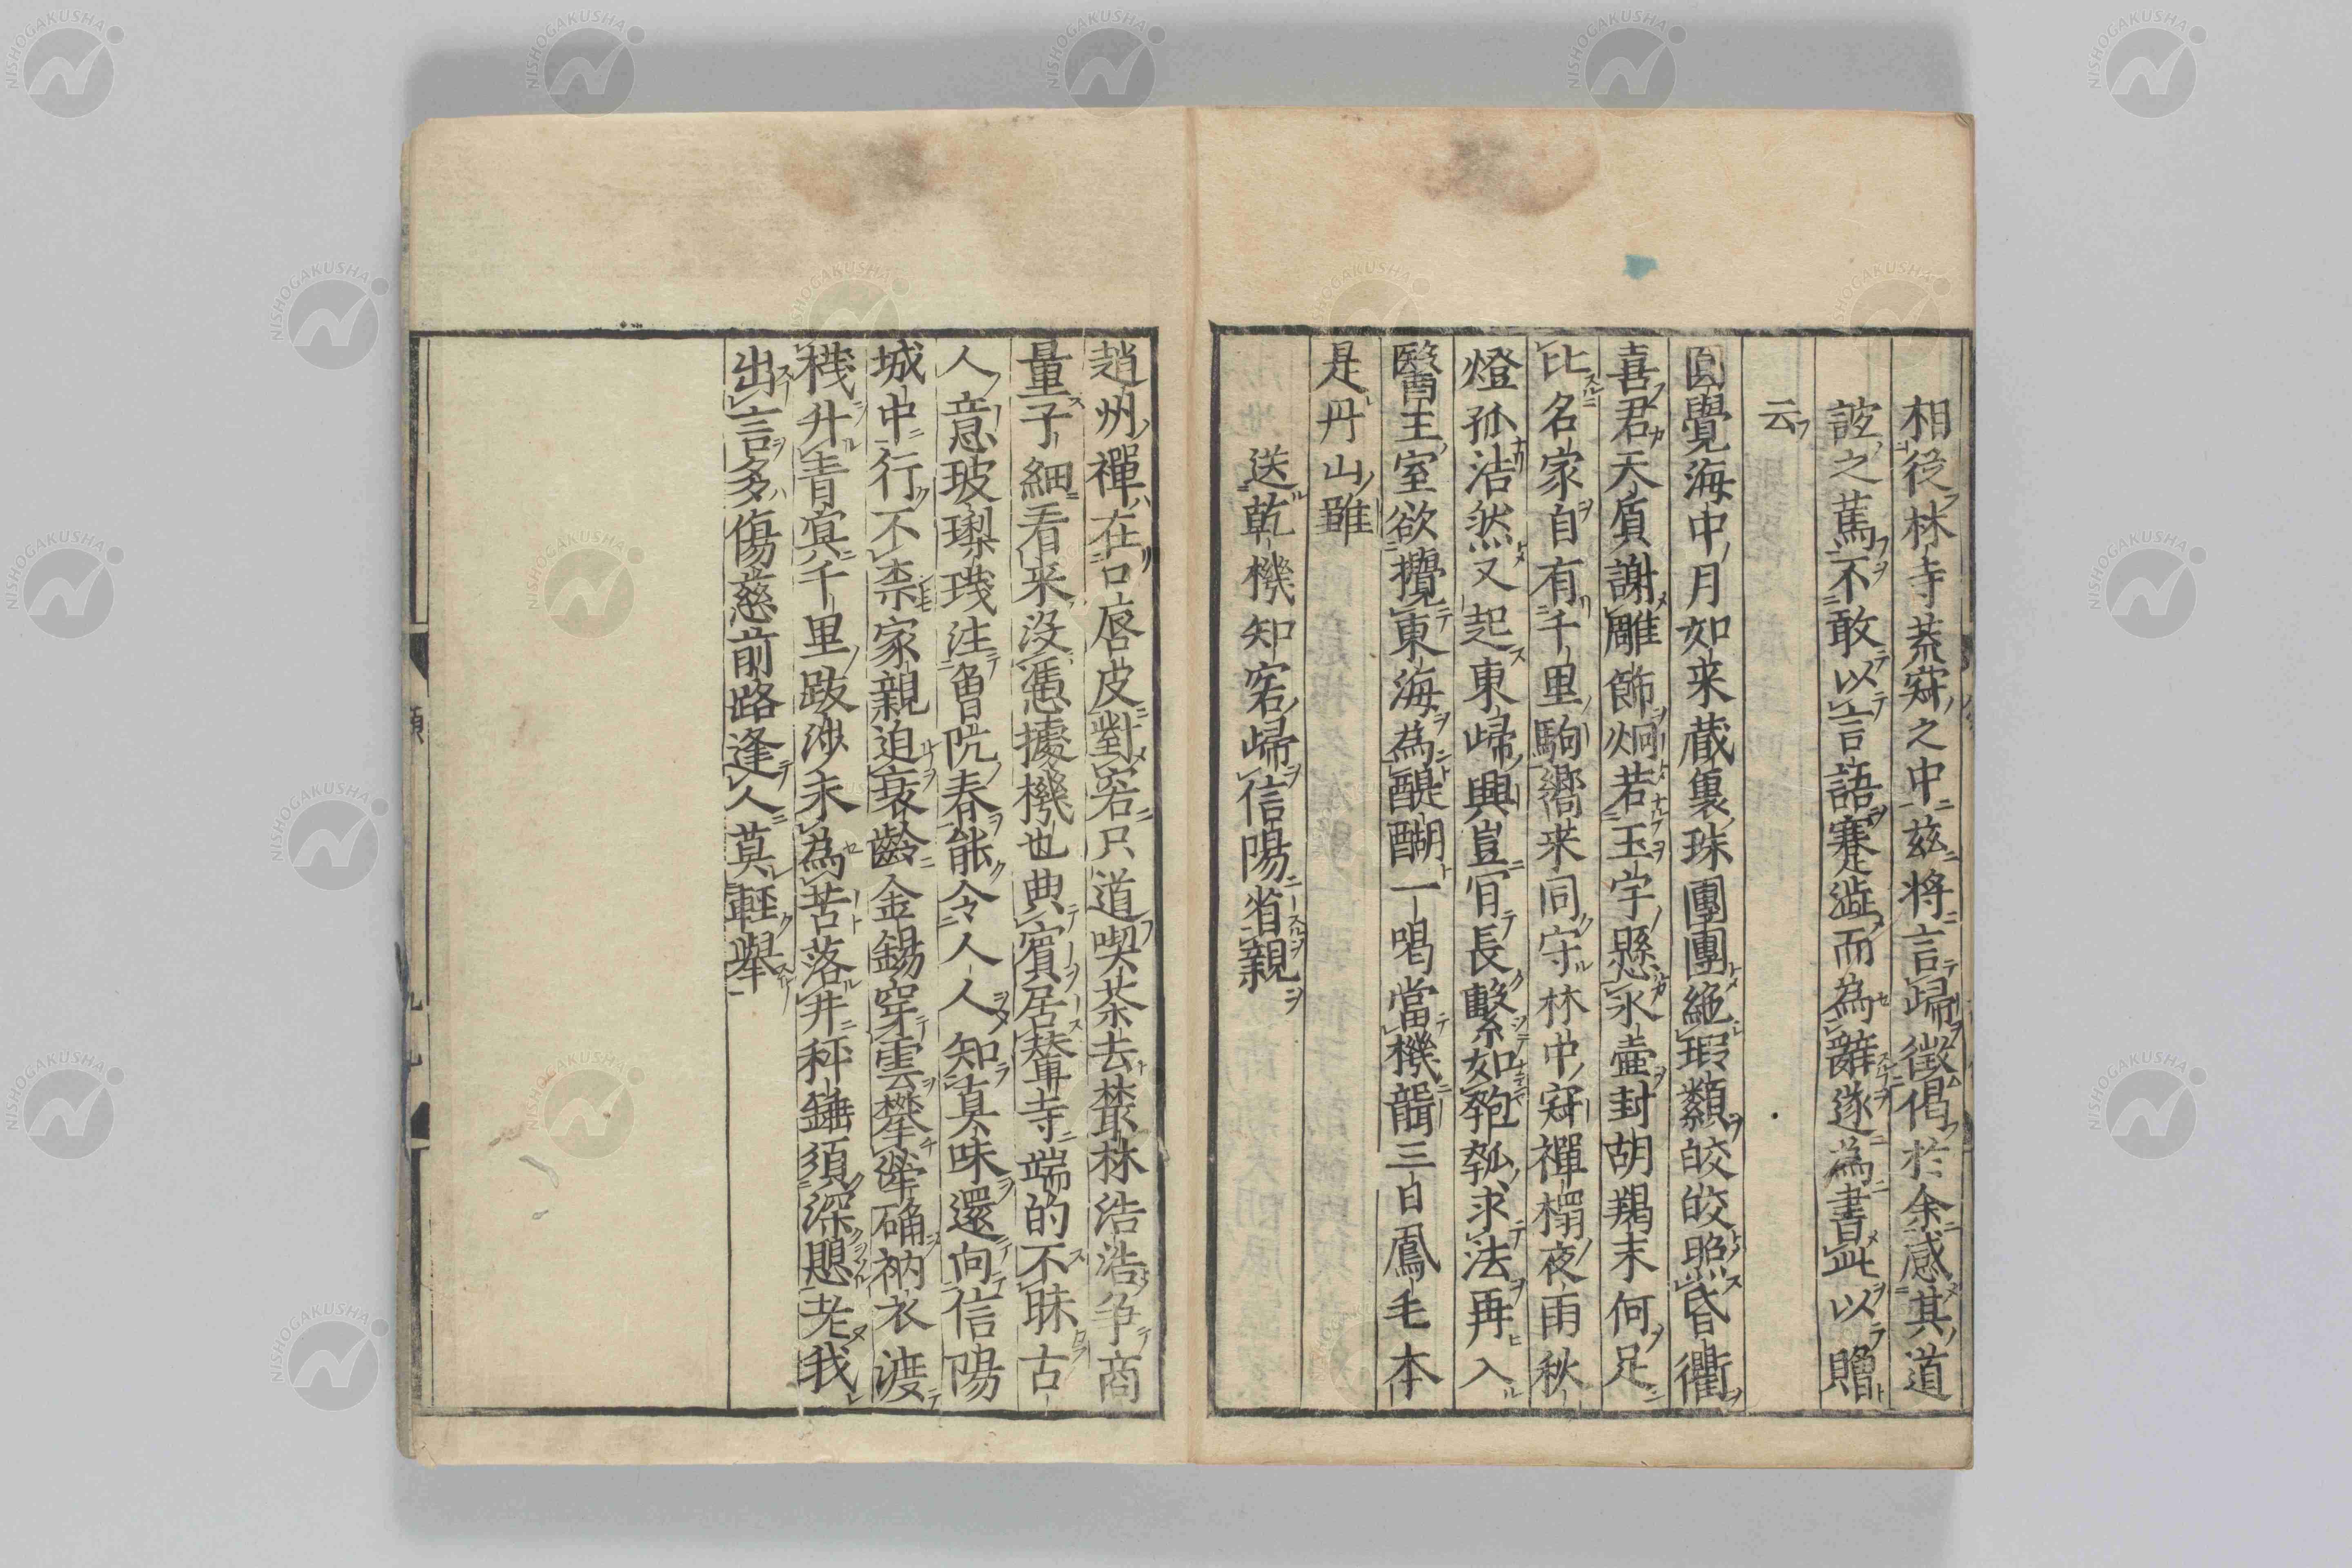 相從林寺荒寂之中茲將言歸徵偈於余感其道
誼之篤不敢以言語蹇澁而為辭遂為書此以贈
云
圓覺海中月如来蔵裏珠團團絶瑕纇皎皎照昏衢
喜君天質謝雕飾炯若玉宇懸氷壷封胡羯末何足
比名家自有千里駒嚮来同守林中寂禪榻夜雨秋
燈孤洁然又起東歸興豈肎長繫如匏瓠求法再入
醫王室欲攪東海為醍醐一喝當機聾三日鳳毛本
是丹山雛
送乾機知客歸信陽省親
趙州禪在口唇皮對客只道喫茶去叢林浩浩争商
量子細看来没憑據機也典賓居輦寺端的不昧古
人意玻瓈琖注魯阬春能令人人知真味還向信陽
城中行不柰家親迫衰齡金錫穿雲攀犖确衲衣渡
棧升青冥千里跋涉未為苦落井秤錘須深愳老我
出言多傷慈前路逢人莫輕舉
頌
NISHOGAKUSHA